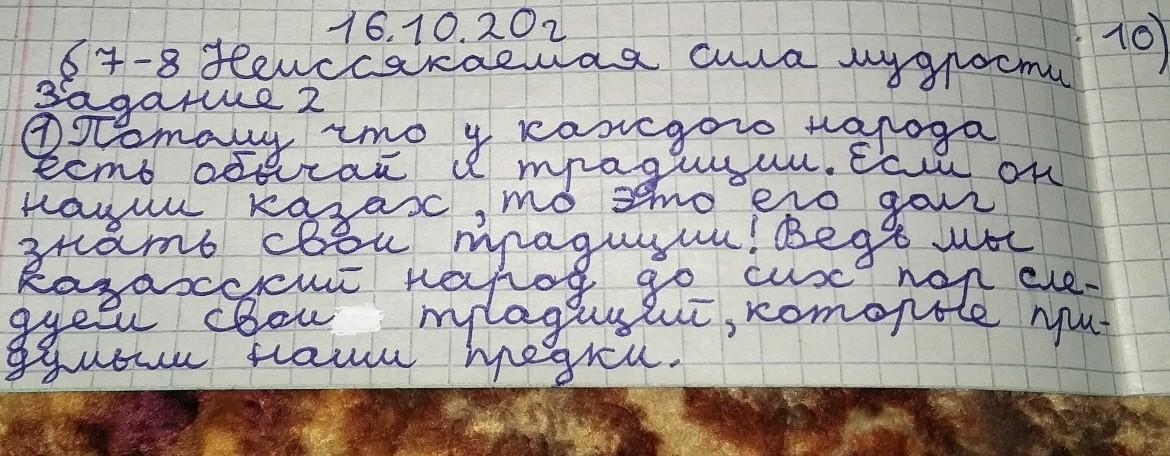 16.10.20г
§ 7-8 Неиссякаемая сила мудрости
10)
Задание 2
① Потому что у каждого народа
есть обычай и традиции. Если он
нации казах, то это его долг
знать свои традиции! Ведь мы
казахский народ до сих пор сле-
дуем свои традиций, которые при-
думыли наши предки.